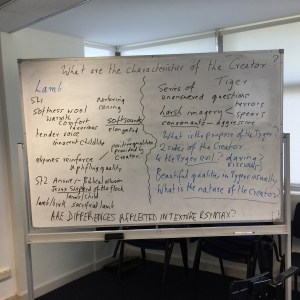 What are the characteristics of the Creator?
Lamb
St1
softness wool
warmth
comfort
tender voice
innocent childlike
nurturing
caring
soft sounds
elongated
expands reinforce
uplifting quality
provided by
Creator
St2 Answer: Biblical allusion
Jesus Shepherd of the flock
lamb/child
lamb/kirk sacrificial lamb
Tiger
Series of
unanswered questions
terrors
harsh imagery < spears
consonants - aggression
What is the purpose of the Tyger?
2 sides of the Creator
Is the Tyger evil? daring?
Beautiful qualities in Tyger visually
What is the nature of the Creator
ARE DIFFERENCES REFLECTED IN TEXTURE & SYNTAX?